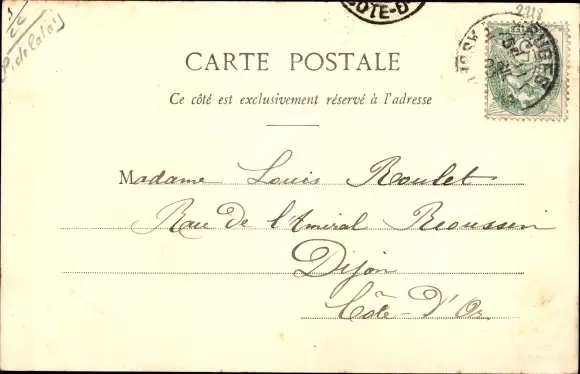 COTE-D
2218
CARTE POSTALE
Ce côté est exclusivement réservé à l'adresse
Madame Louis Roulet
Rue De l'Amiral Roussin
Dijon
Côte-D'Or